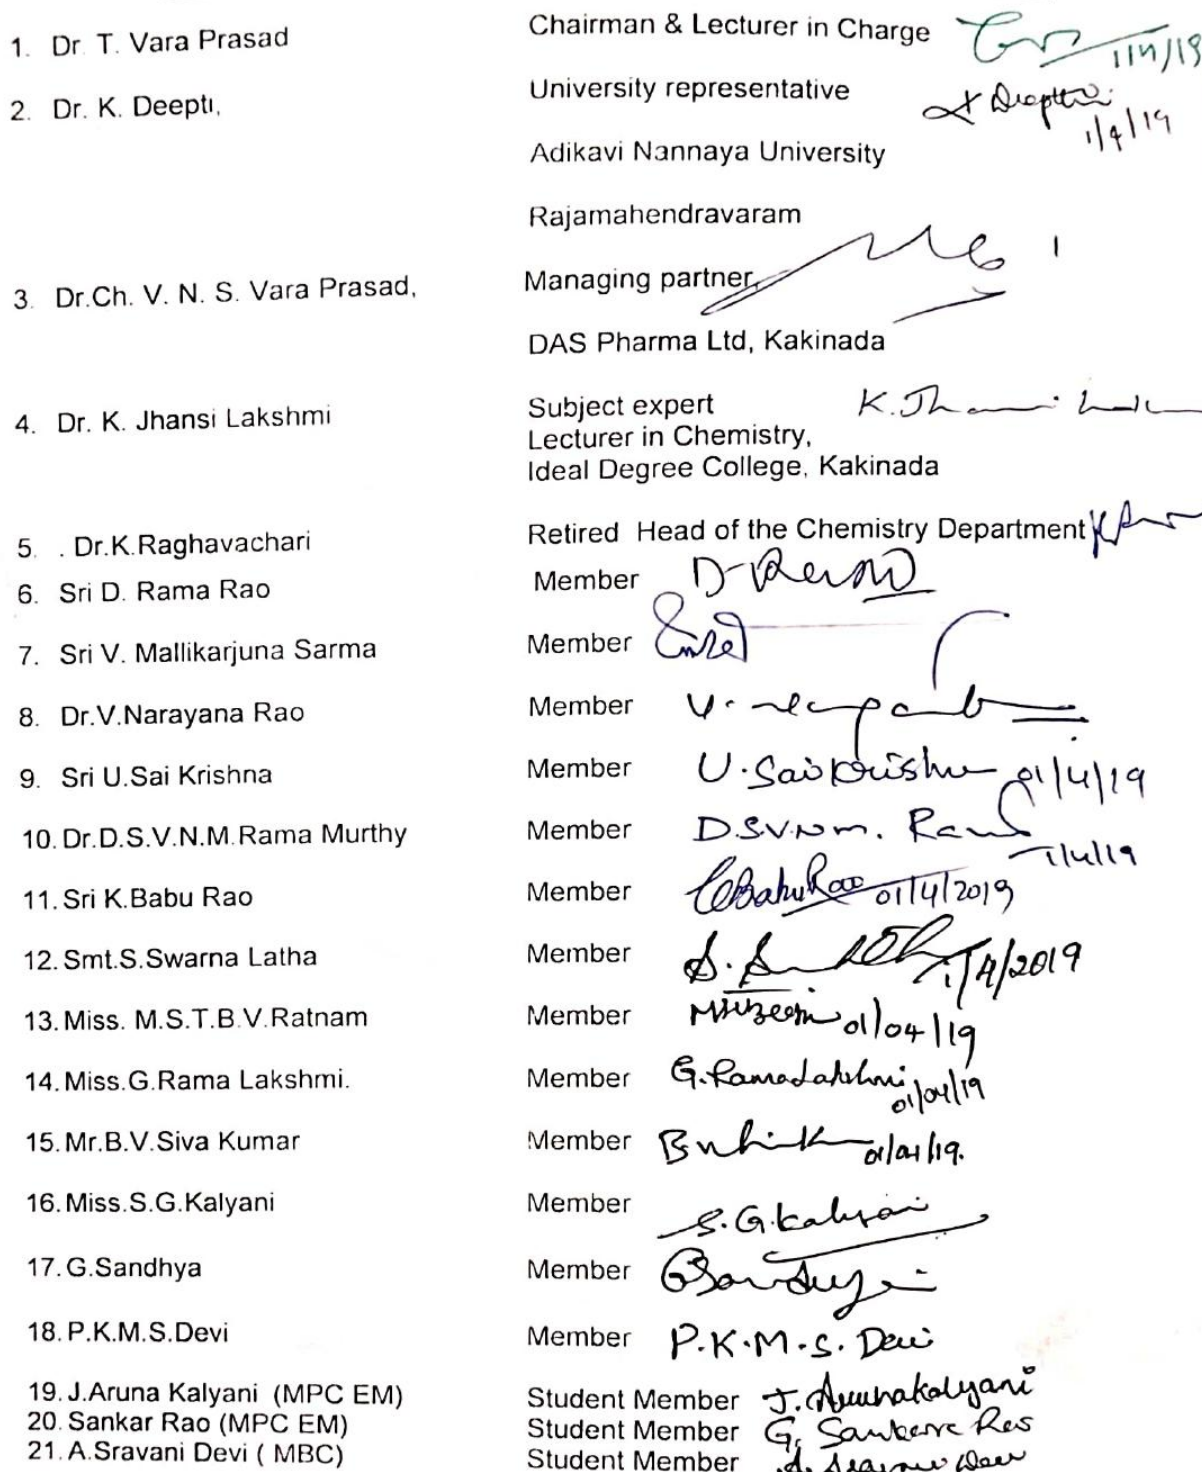 1. Dr. T. Vara Prasad Chairman & Lecturer in Charge
2. Dr. K. Deepti, University representative K Deepthi
1/4/19
Adikavi Nannaya University
Rajamahendravaram
3. Dr.Ch. V. N. S. Vara Prasad, Managing partner,
DAS Pharma Ltd, Kakinada
4. Dr. K. Jhansi Lakshmi Subject expert K. Jhansi Lakshmi
Lecturer in Chemistry,
Ideal Degree College, Kakinada
5. . Dr.K.Raghavachari Retired Head of the Chemistry Department
6. Sri D. Rama Rao Member
7. Sri V. Mallikarjuna Sarma Member
8. Dr.V.Narayana Rao Member
9. Sri U.Sai Krishna Member U. Saikrishna 01/4/19
10. Dr.D.S.V.N.M.Rama Murthy Member D.S.V.N.M. Rama
1/4/19
11. Sri K.Babu Rao Member KBabuRao 01/4/2019
12. Smt.S.Swarna Latha Member 1/4/2019
13. Miss. M.S.T.B.V.Ratnam Member 01/04/19
14. Miss.G.Rama Lakshmi. Member G. RamaLakshmi
01/04/19
15. Mr.B.V.Siva Kumar Member 01/04/19.
16. Miss.S.G.Kalyani Member S.G.Kalyani
17. G.Sandhya Member GSandhya
18. P.K.M.S.Devi Member P.K.M.S. Devi
19. J.Aruna Kalyani (MPC EM) Student Member J. Arunakalyani
20. Sankar Rao (MPC EM) Student Member G. Sankara Rao
21. A.Sravani Devi ( MBC) Student Member A. Sravani Devi